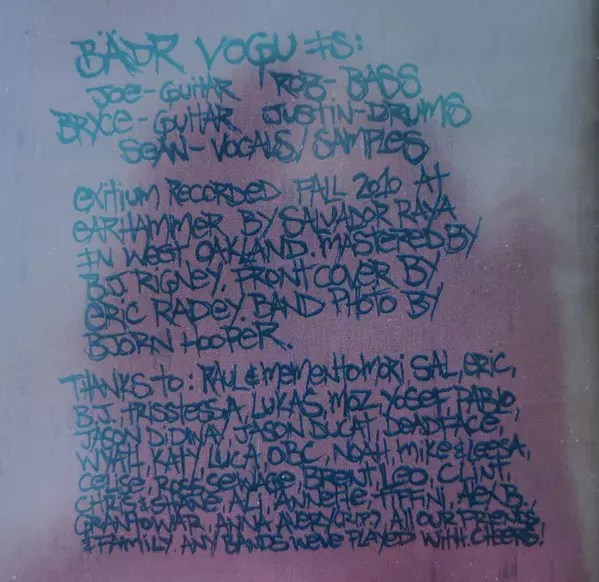 BÄDR VOGU IS:
JOE-GUITAR ROB-BASS
BRYCE-GUITAR JUSTIN-DRUMS
SEAN-VOCALS/SAMPLES
EXITIUM RECORDED FALL 2010 AT
EARHAMMER BY SALVADOR RAYA
IN WEST OAKLAND. MASTERED BY
B.J. RIGNEY. FRONT COVER BY
ERIC RADEY. BAND PHOTO BY
BJORN HOOPER.
THANKS TO: RAUL & MEMENTOMORI SAL, ERIC,
B.J. TRISSTESSA, LUKAS, MOZ, YOSEF, PABLO,
JASON DIDINA, JASON DUCAT, DEADFACE,
WYATT, KATY, LUCA, OBC NOAH, MIKE & LEESA,
CELISE, ROSE, SEWAGE, BRENT, LEO, CLINT,
ALI, ANNETTE, TIFFINI, ALEX B.,
GRANTOWAR, ANNA, AVERY ALL OUR FRIENDS
& FAMILY. ANY BANDS WE'VE PLAYED WITH. CHEERS!